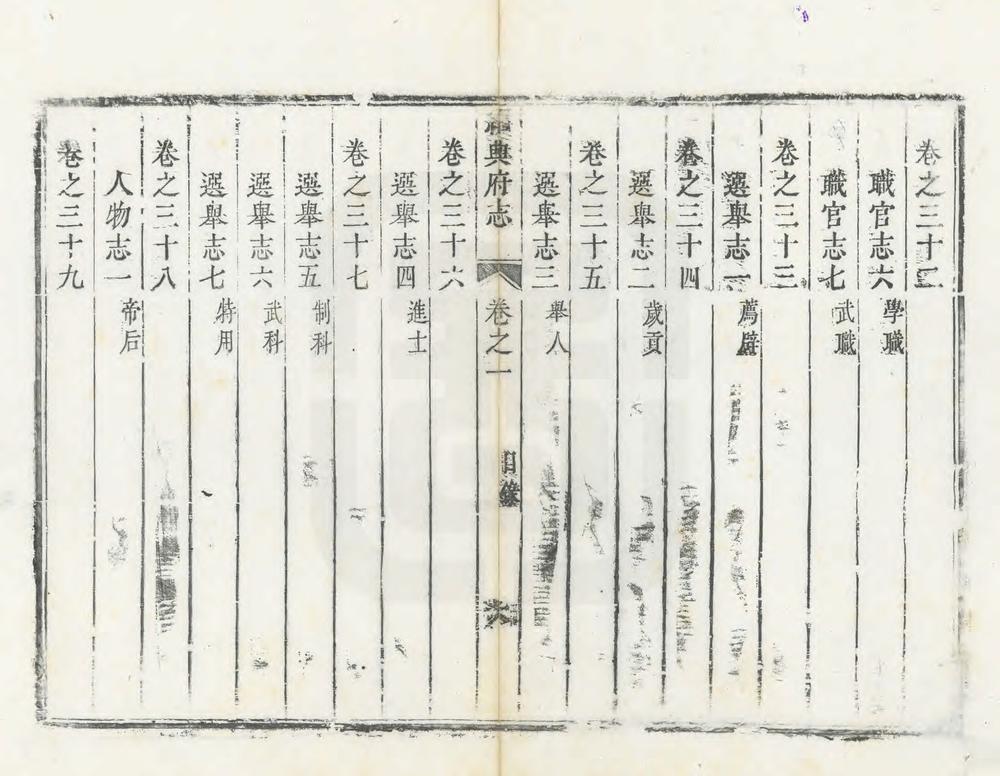 卷之三十二
職官志六 學職
職官志七 武職
卷之三十三
選舉志一 薦辟
卷之三十四
選舉志二 歲貢
卷之三十五
選舉志三 舉人
典府志 卷之一 目錄
卷之三十六
選舉志四 進士
卷之三十七
選舉志五 制科
選舉志六 武科
選舉志七 特用
卷之三十八
人物志一 帝后
卷之三十九